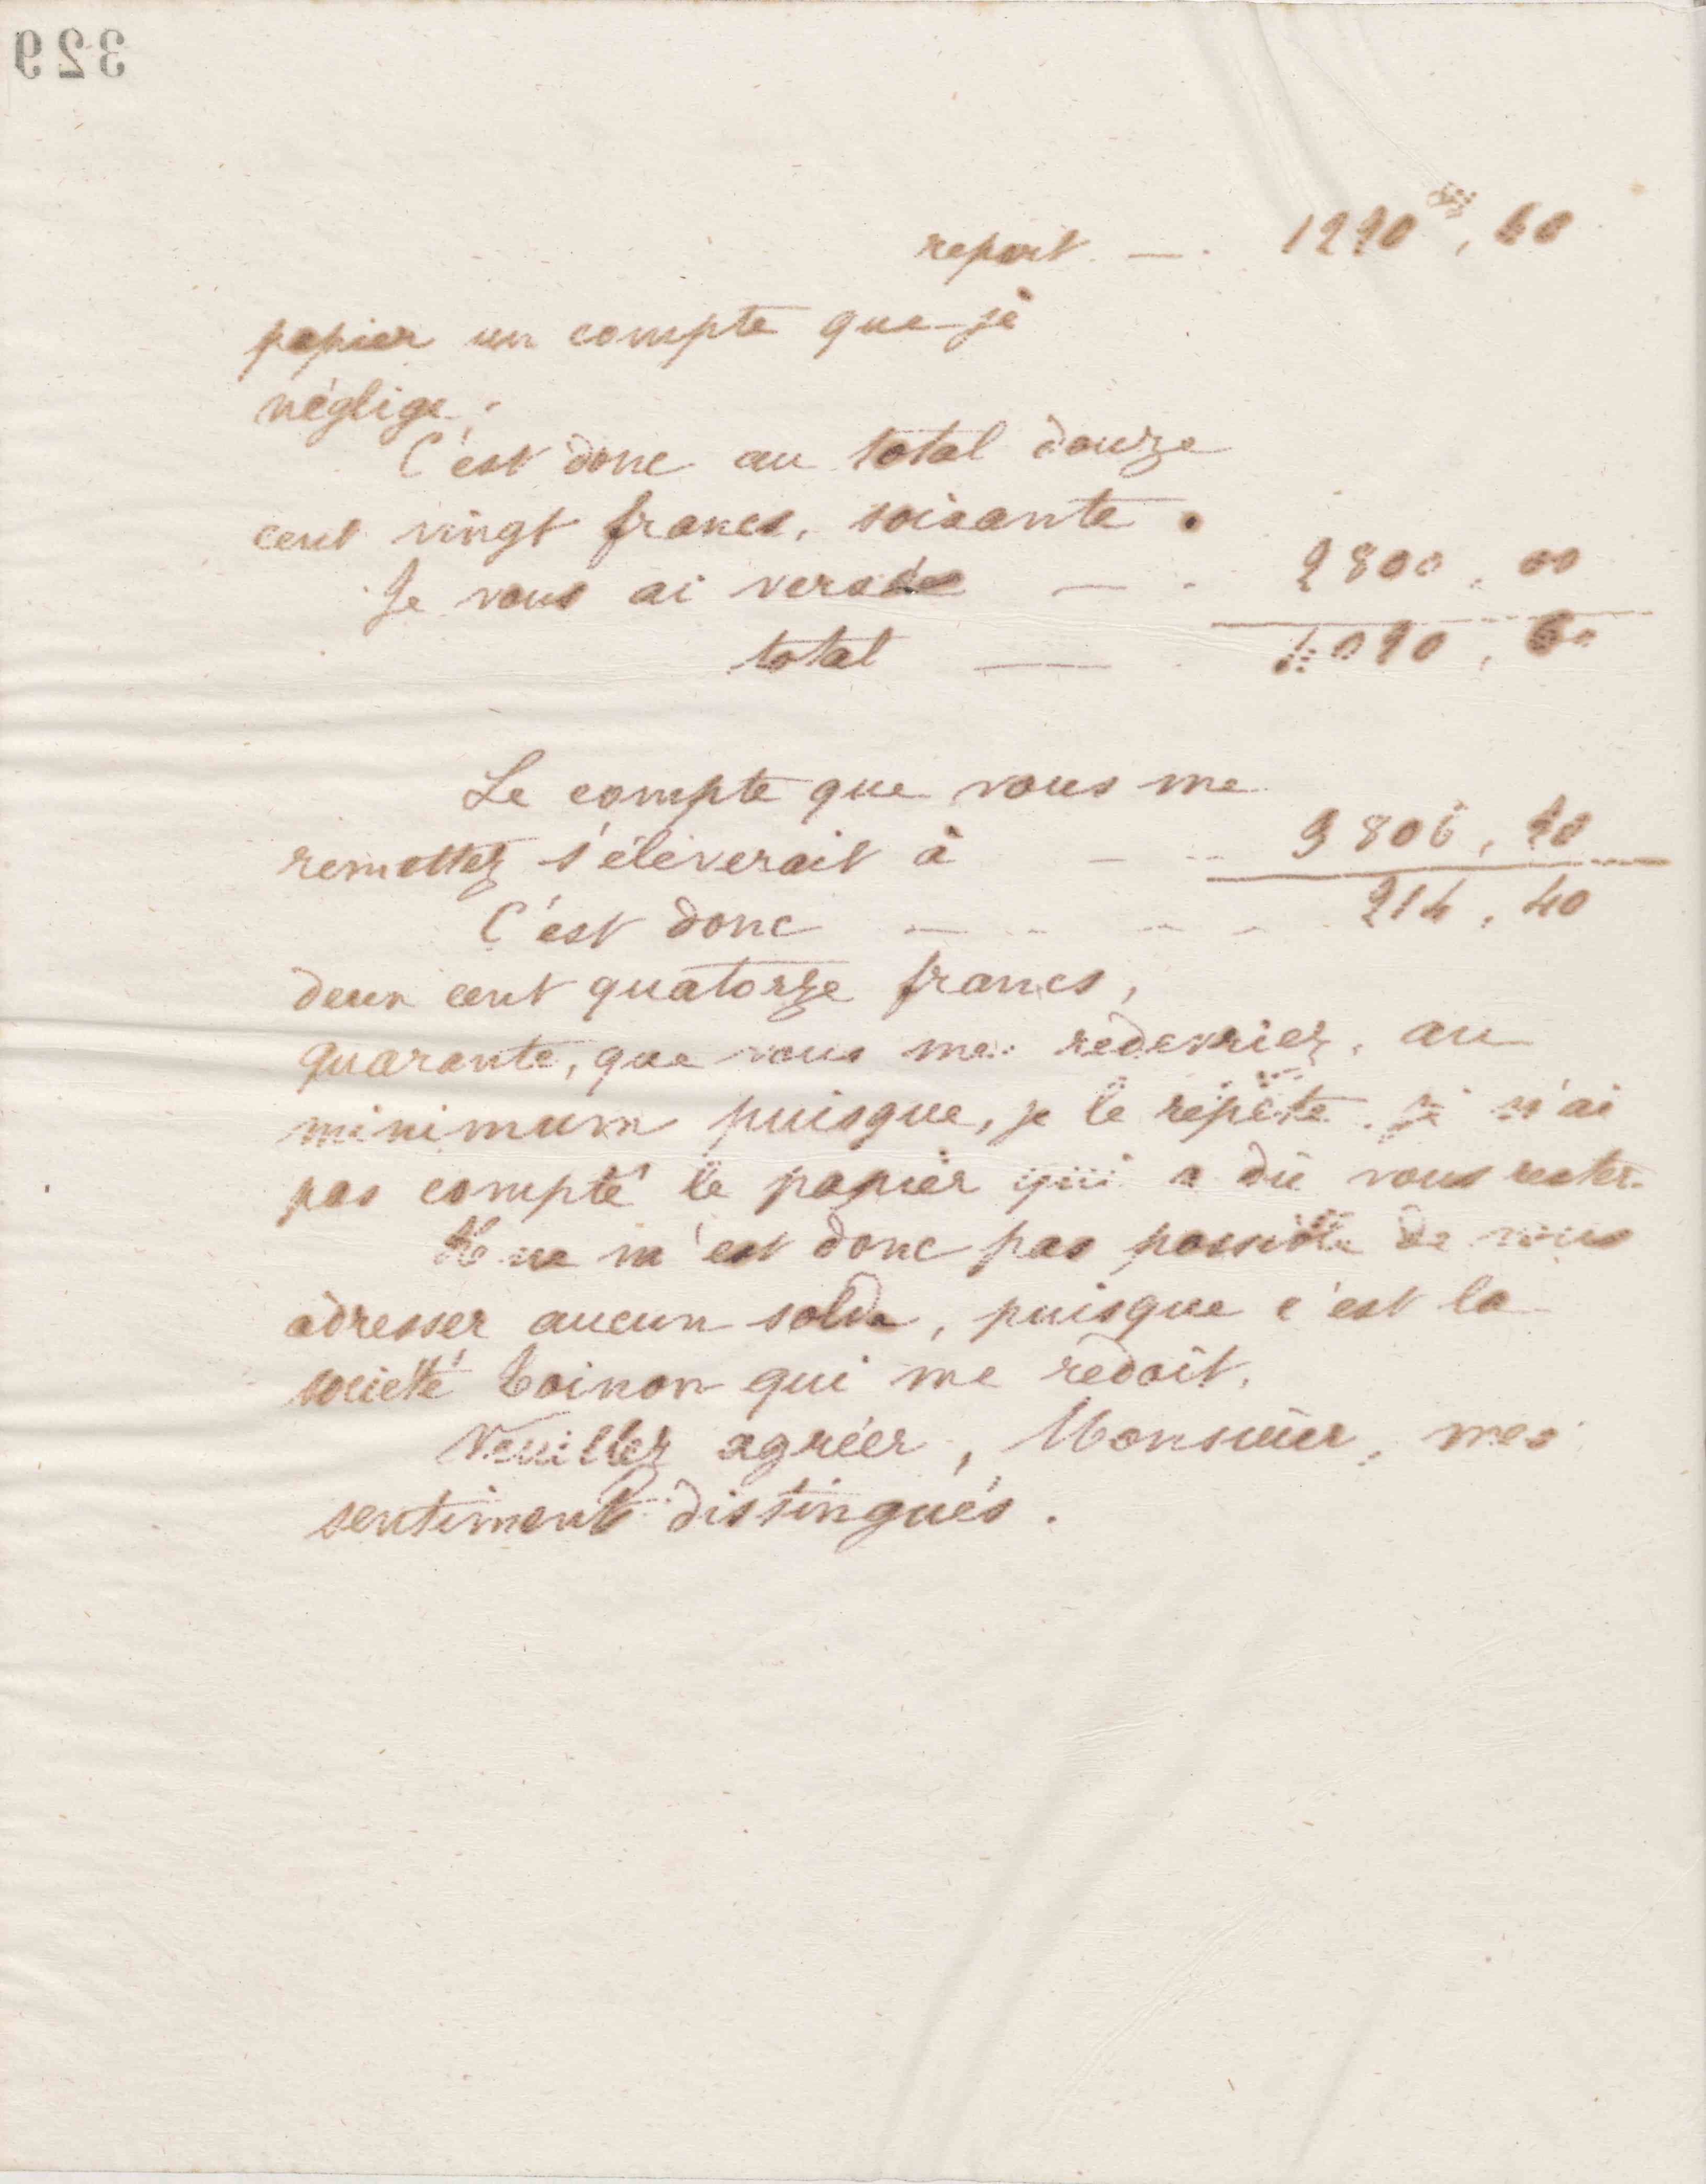 329
report — 1220, 60
papier un compte que je
néglige.
C'est donc au total douze
cent vingt francs, soixante.
Je vous ai versé — 2800, 00
total — 4020, 60
Le compte que vous me
remettez s'élèverait à — 3806, 20
C'est donc — 214, 40
deux cent quatorze francs,
quarante, que vous me redevriez, au
minimum puisque, je le répète, je n'ai
pas compté le papier qui a dû vous rester.
Il ne m'est donc pas possible de vous
adresser aucun solde, puisque c'est la
société Toinon qui me redoit.
Veuillez agréer, Monsieur, mes
sentiments distingués.